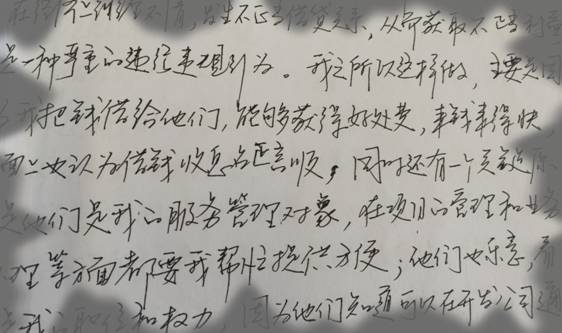 在经济上纠缠不清，发生不正当借贷关系，从中获取不正当利
是一种严重的违纪违规行为。我之所以这样做，主要是因
我把钱借给他们，能够获得好处费，来钱来得快，
面上也认为借钱收息名正言顺，同时还有一个关键原
是他们是我的服务管理对象，在项目的管理和业务
理等方面都要我帮忙提供方便；他们也乐意，看
是我的职位和权力，因为他们知道可以在开发公司通